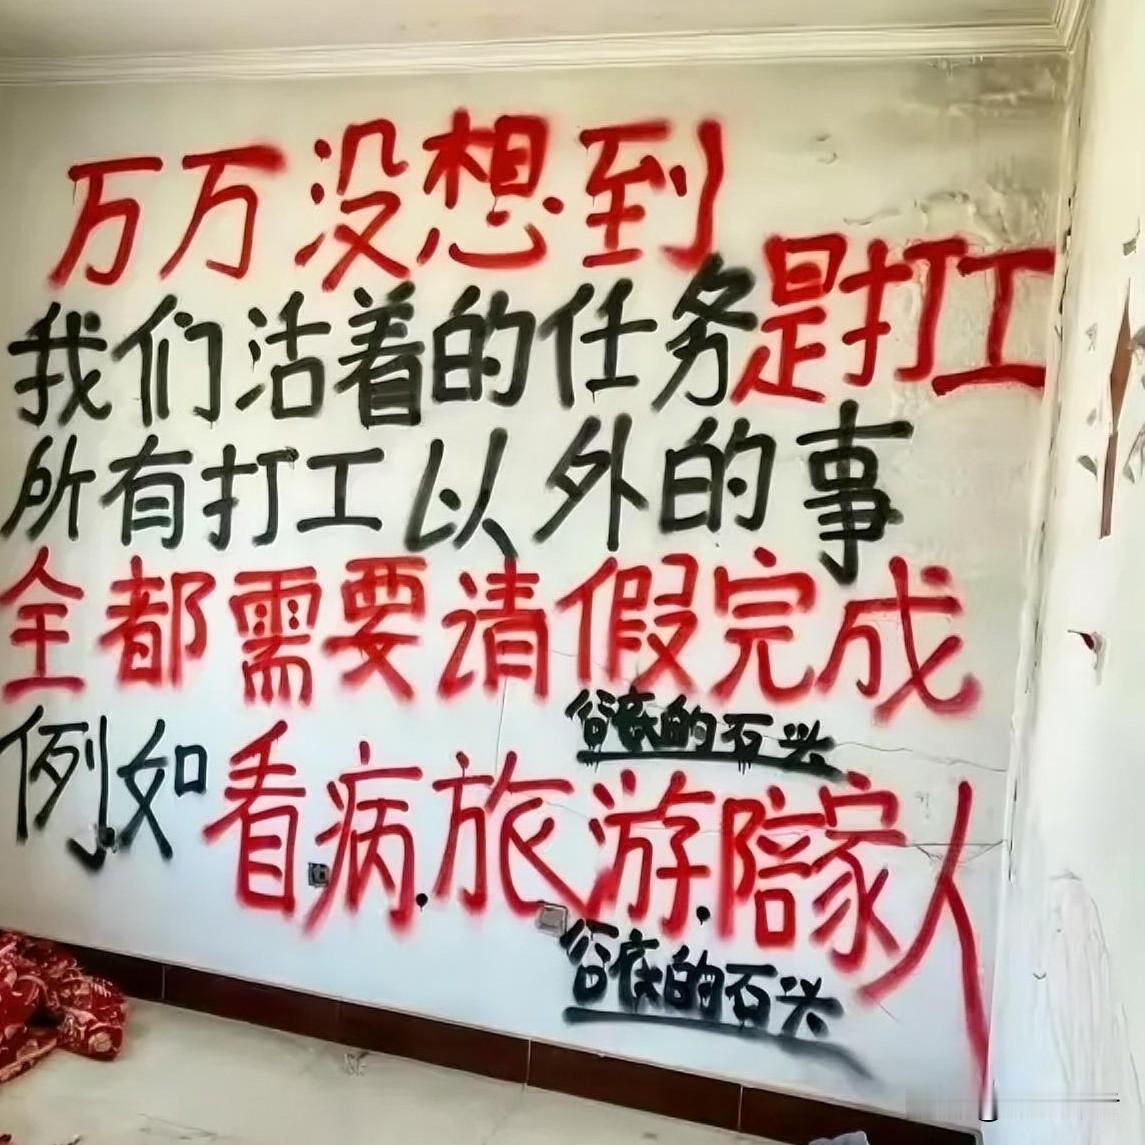 万万没想到
我们活着的任务是打工
所有打工以外的事
全都需要请假完成
谷底的石兴
例如看病.旅游.陪家人
谷底的石兴